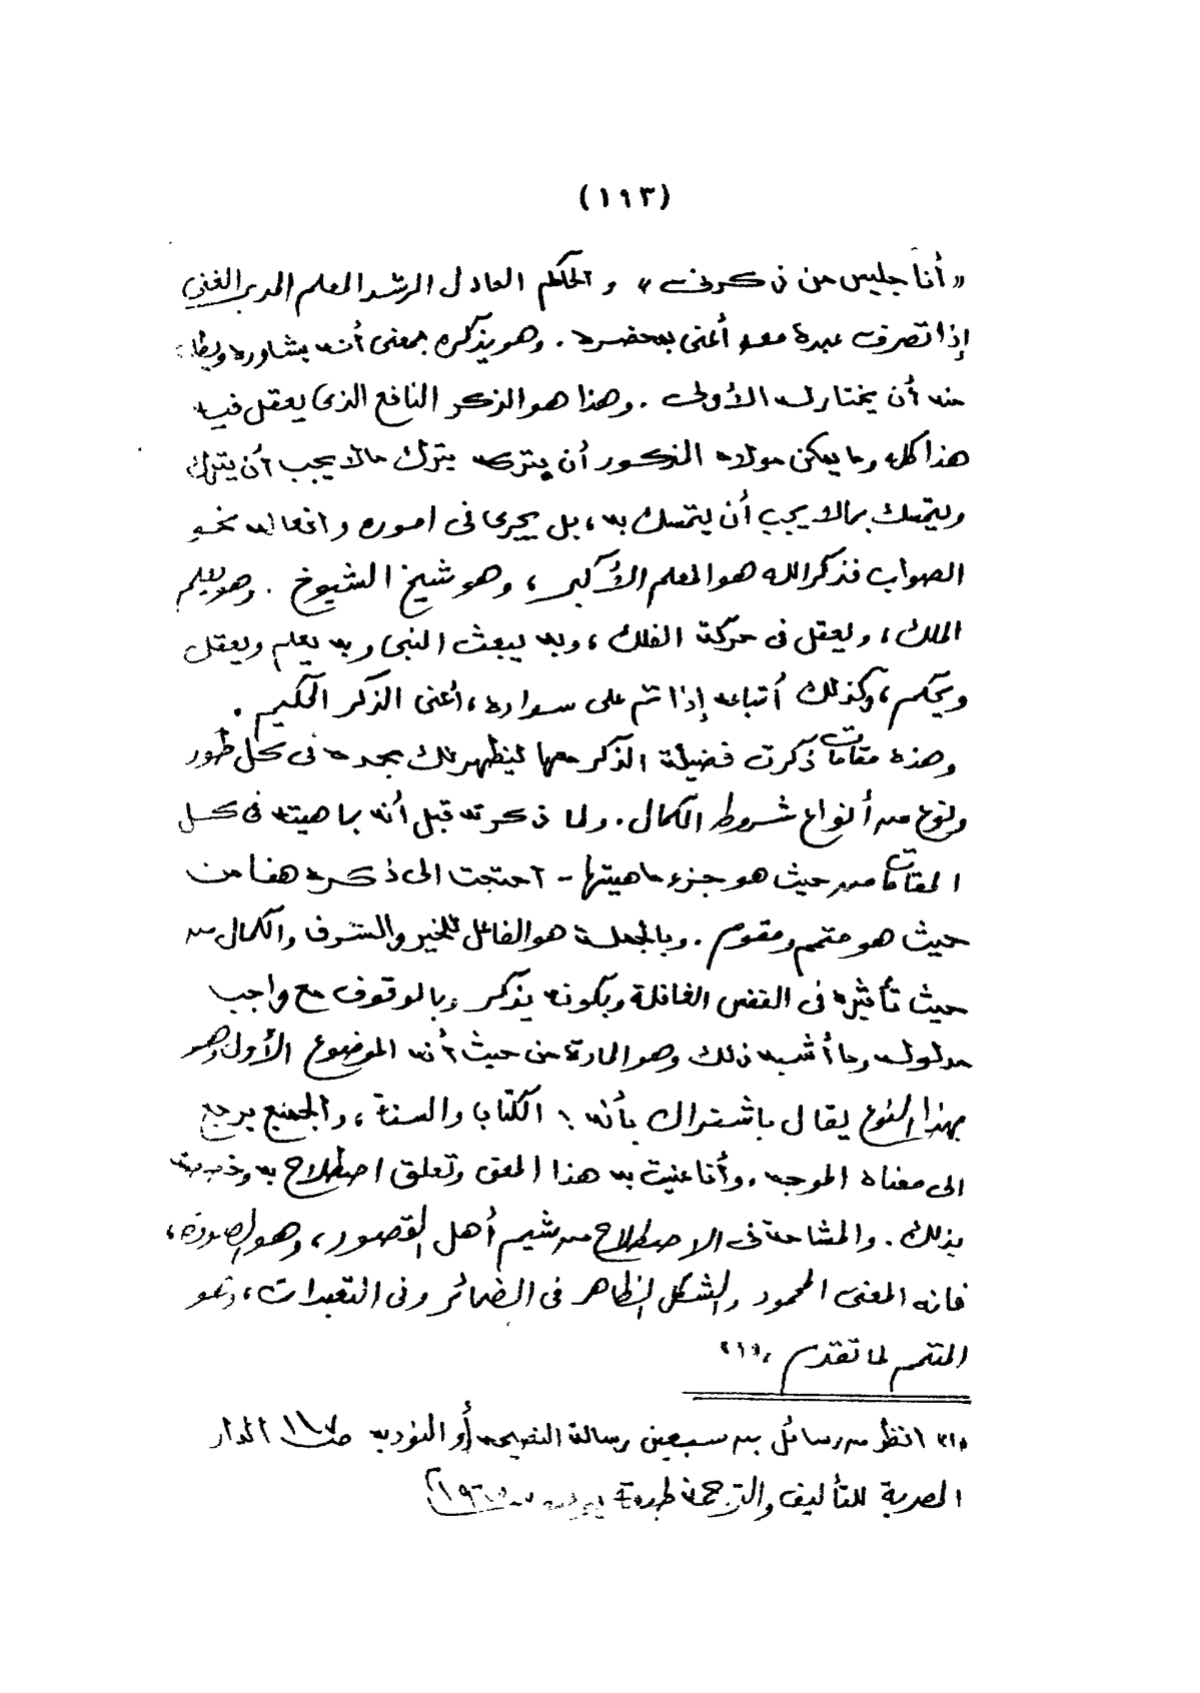 (١٩٣)
« أنا جليس من ذكرنى » والحاكم العادل المرشد المعلم المدبر الغنى
إذا تصرف عبده معه أعنى بحضرته . وهو يذكره بمعنى أنه يشاوره
منه أن يختار له الأولى . وهذا هو الذكر النافع الذى يعقل فيه
هذا كله وما يمكن مولاه المذكور أن يتركه يترك مالا يجب أن يترك
ويتمسك بمالا يجب أن يتمسك به ، بل يجرى فى اموره وافعاله نحو
الصواب فذكر الله هو المعلم الأكبر ، وهو شيخ الشيوخ . وهو يعلم
الملك ، ويعقل فى حركة الفلك ، وبه يبعث النبى وبه يعلم ويعقل
ويحكم ، وكذلك أتباعه إذا تم على سواره ، أعنى الذكر الحكيم .
وهذه مقامات ذكرت فضيلة الذكر معها ليظهر لك مجده فى كل طور
ونوع من أنواع شروط الكمال . ولما ذكرته قبل أنه بماهيته فى كل
المقامات من حيث هو جزء ماهيتها - احتجت الى ذكره هنا من
حيث هو متمم ومقوم . وبالجملة هو الفاعل للخير والشرف والكمال من
حيث تأثيره فى النفس الغافلة وبكونه يذكر وبالوقوف مع واجب
مدلوله وما أشبه ذلك وهو المادة من حيث أنه الموضوع الأول وهو
بهذا النوع يقال باشتراك بأنه : الكتاب والسنة ، والجميع يرجع
الى معناه الموجه . وأنا عنيت به هذا المعنى وتعلق اصطلاح به وخصصته
بذلك . والمشاحة فى الاصطلاح من شيم أهل القصور ، وهو الصورة ،
فانه المعنى المحمود والشكل الظاهر فى الضمائر وفى التعبدات ، وهو
المتمم لما تقدم «١»
«١» انظر من رسائل بن سبعين رسالة النصيحة أو النورية ص١٨٧ الدار
المصرية للتأليف والترجمة